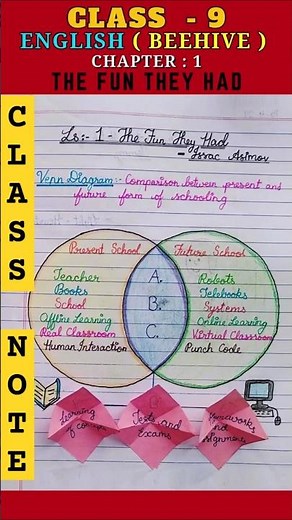 CLASS - 9
ENGLISH ( BEEHIVE )
CHAPTER : 1
THE FUN THEY HAD
CLASS NOTE
Ls:- 1 - The Fun They Had
- Issac Asimov
Venn Diagram:- Comparison between present and
future form of schooling
Present School
Future School
Teacher
Books
School
Offline Learning
Real Classroom
Human Interaction
A.
B.
C.
Robots
Telebooks
Systems
Online Learning
Virtual Classroom
Punch Code
Learning
of
Tests and
Exams
Homeworks
and
Assignments